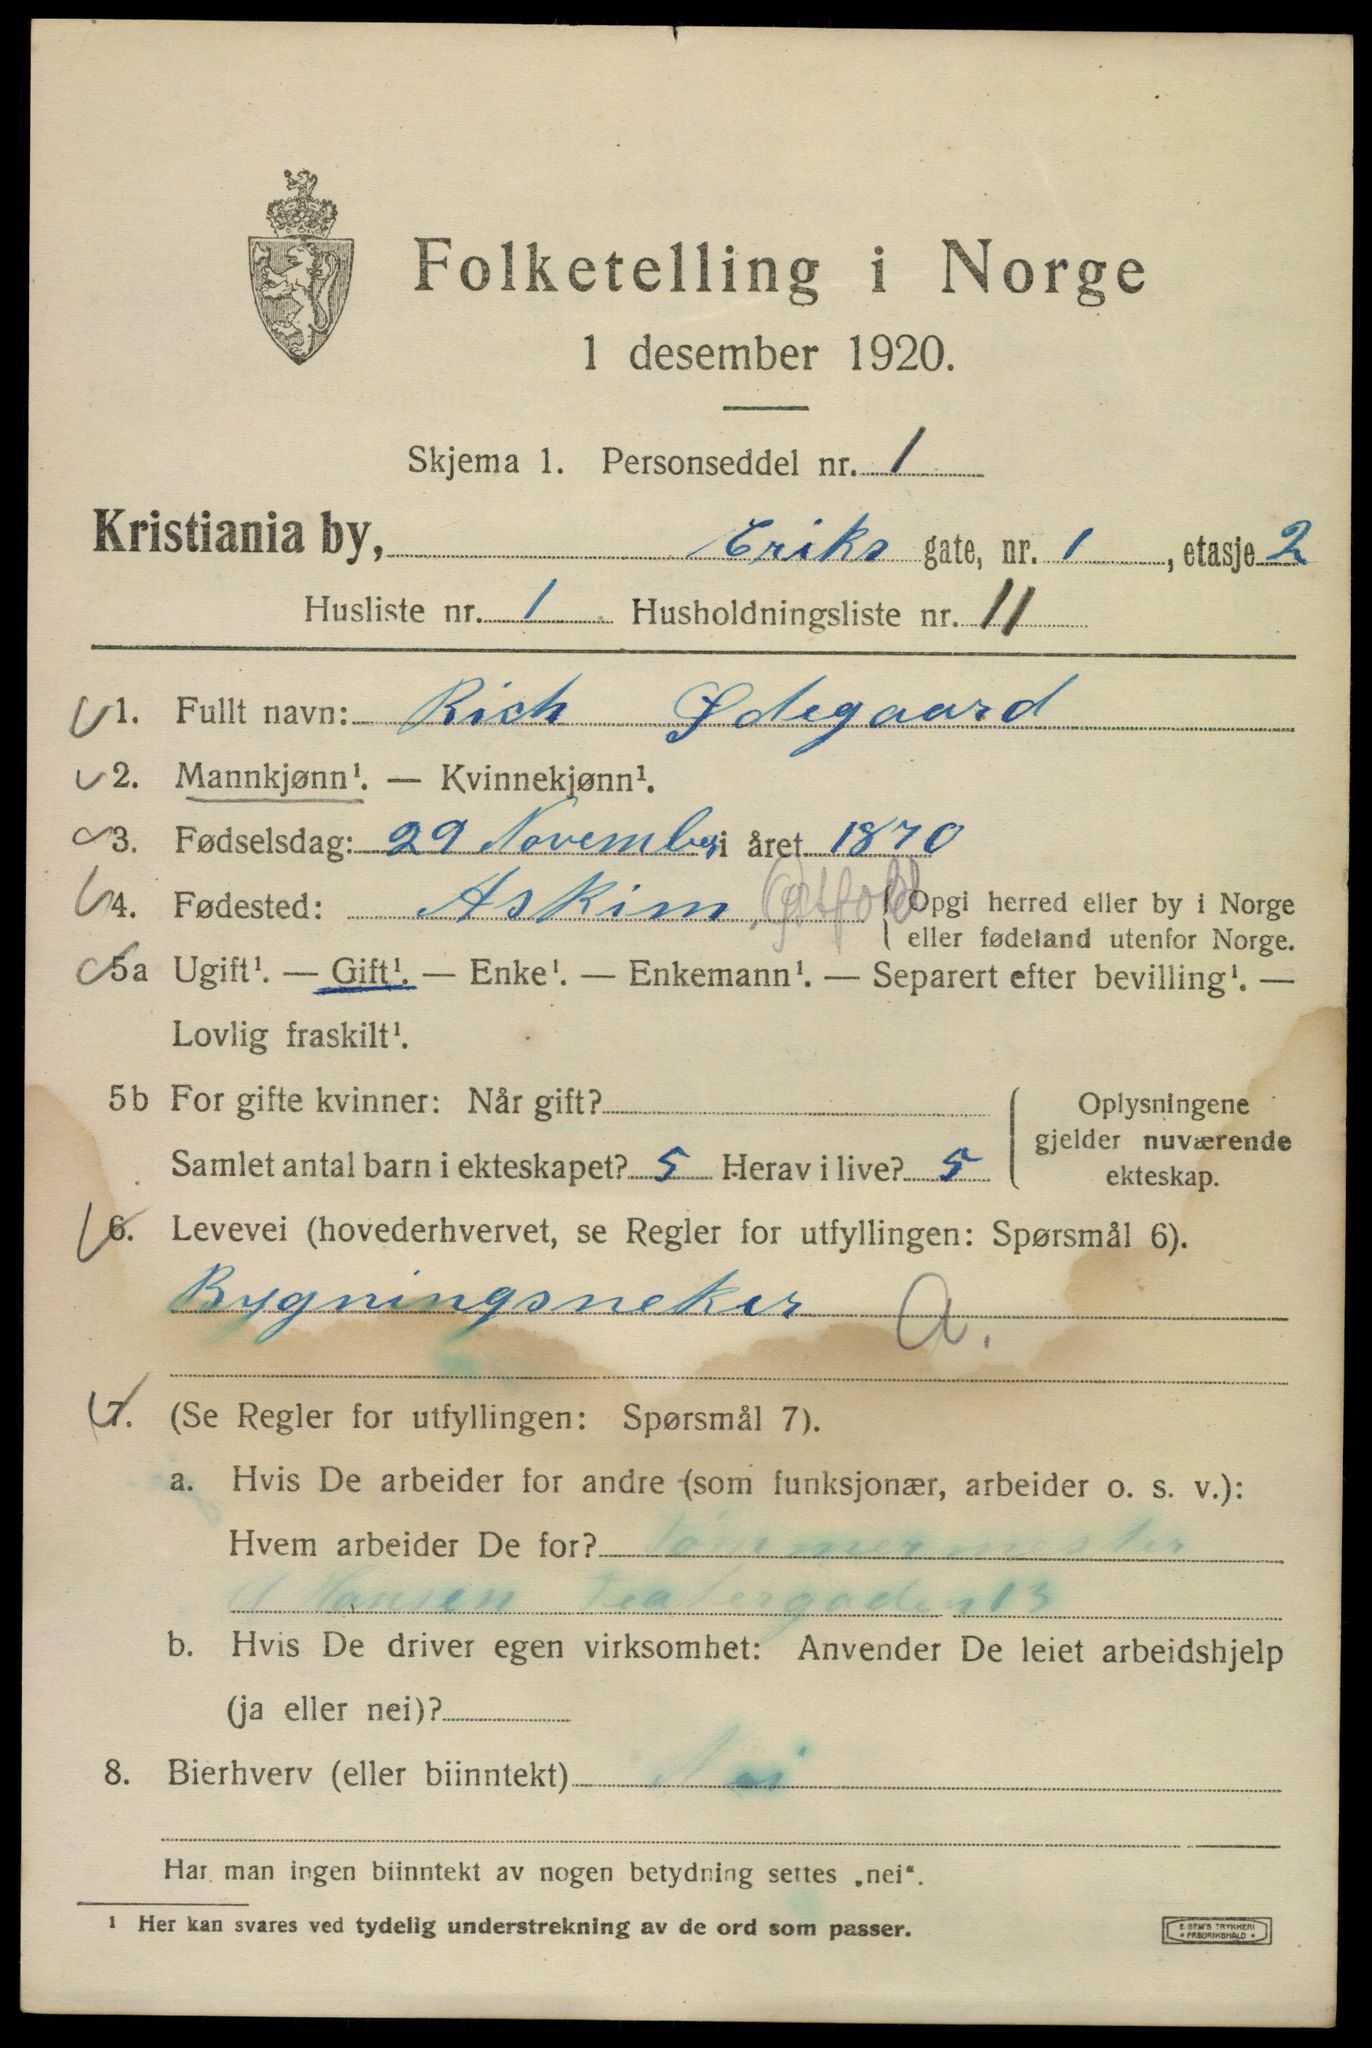 Folketelling i Norge
1 desember 1920.
Skjema 1. Personseddel nr. 1
Kristiania by, Eriks gate, nr. 1, etasje 2
Husliste nr. 1. Husholdningsliste nr. 11
1. Fullt navn: Rich Ødegaard
2. Mannkjønn¹. — Kvinnekjønn¹.
3. Fødselsdag: 29 November i året 1870
4. Fødested: Askim Østfold { Opgi herred eller by i Norge
eller fødeland utenfor Norge.
5a Ugift¹. — Gift¹. — Enke¹. — Enkemann¹. — Separert efter bevilling¹. —
Lovlig fraskilt¹.
5b For gifte kvinner: Når gift?
Samlet antal barn i ekteskapet? 5 Herav i live? 5
Oplysningene
gjelder nuværende
ekteskap.
6. Levevei (hovederhvervet, se Regler for utfyllingen: Spørsmål 6).
Bygningsneker A.
7. (Se Regler for utfyllingen: Spørsmål 7).
a. Hvis De arbeider for andre (som funksjonær, arbeider o. s. v.):
Hvem arbeider De for? Tømmermester
A Hansen Teatergaden 13
b. Hvis De driver egen virksomhet: Anvender De leiet arbeidshjelp
(ja eller nei)?
8. Bierhverv (eller biinntekt) Nei
Har man ingen biinntekt av nogen betydning settes „nei“.
¹ Her kan svares ved tydelig understrekning av de ord som passer.
E. SEM'S TRYKKERI
• FREDRIKSHALD •